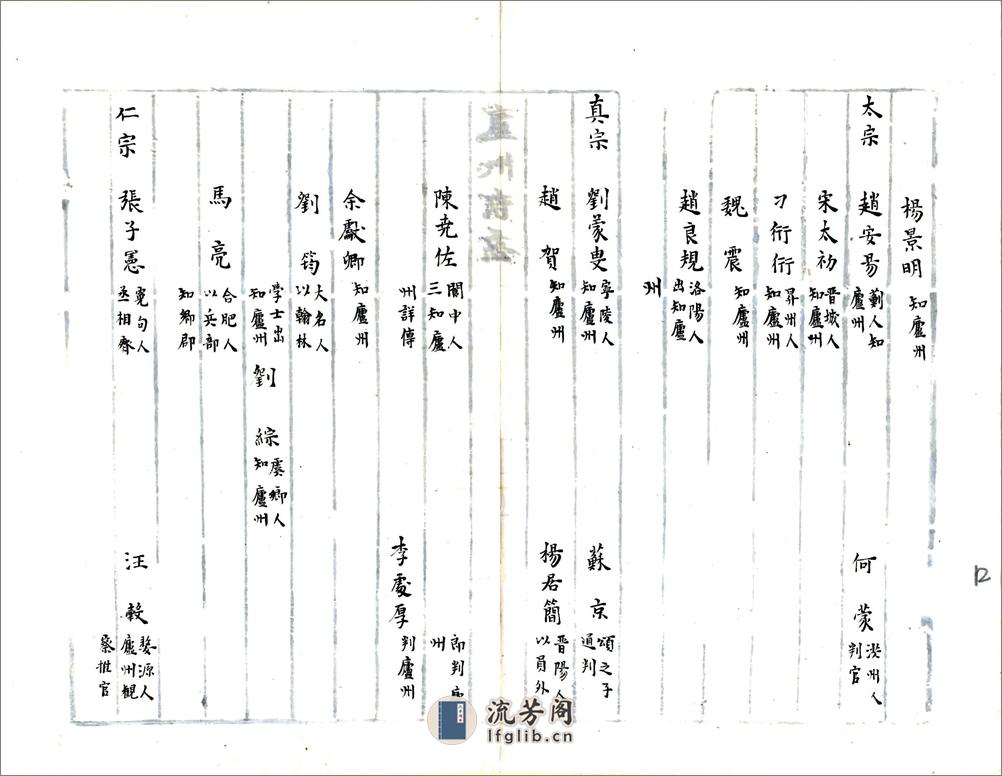 楊景明 知廬州
太宗 趙安易 薊人知廬州 何蒙 洪州人判官
宋太初 晉城人知廬州
刁衎衎 昇州人知廬州
魏震 知廬州
趙良規 洛陽人出知廬州
真宗 劉蒙叟 寧陵人知廬州 蘇京 頌之子通判
趙賀 知廬州 楊居簡 晉陽人以員外郎判廬州
陳堯佐 閬中人三知廬州詳傳 李處厚 判廬州
余獻卿 知廬州
劉筠 大名人以翰林學士出知廬州
劉綜 虞鄉人知廬州
馬亮 合肥人以兵部知鄉郡
仁宗 張子憲 冤句人丞相齊 汪穀 婺源人廬州觀察推官
12
流芳阁
lfglib.cn